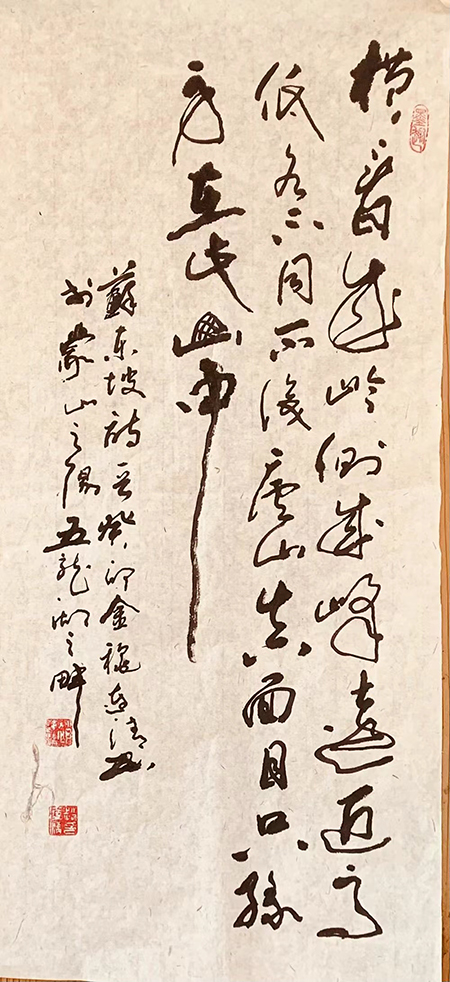 橫看成岭側成峰遠近高
低各不同不識庐山真面目只緣
身在此山中
蘇東坡詩癸卯金秋
於蒙山之陽五龍湖之畔